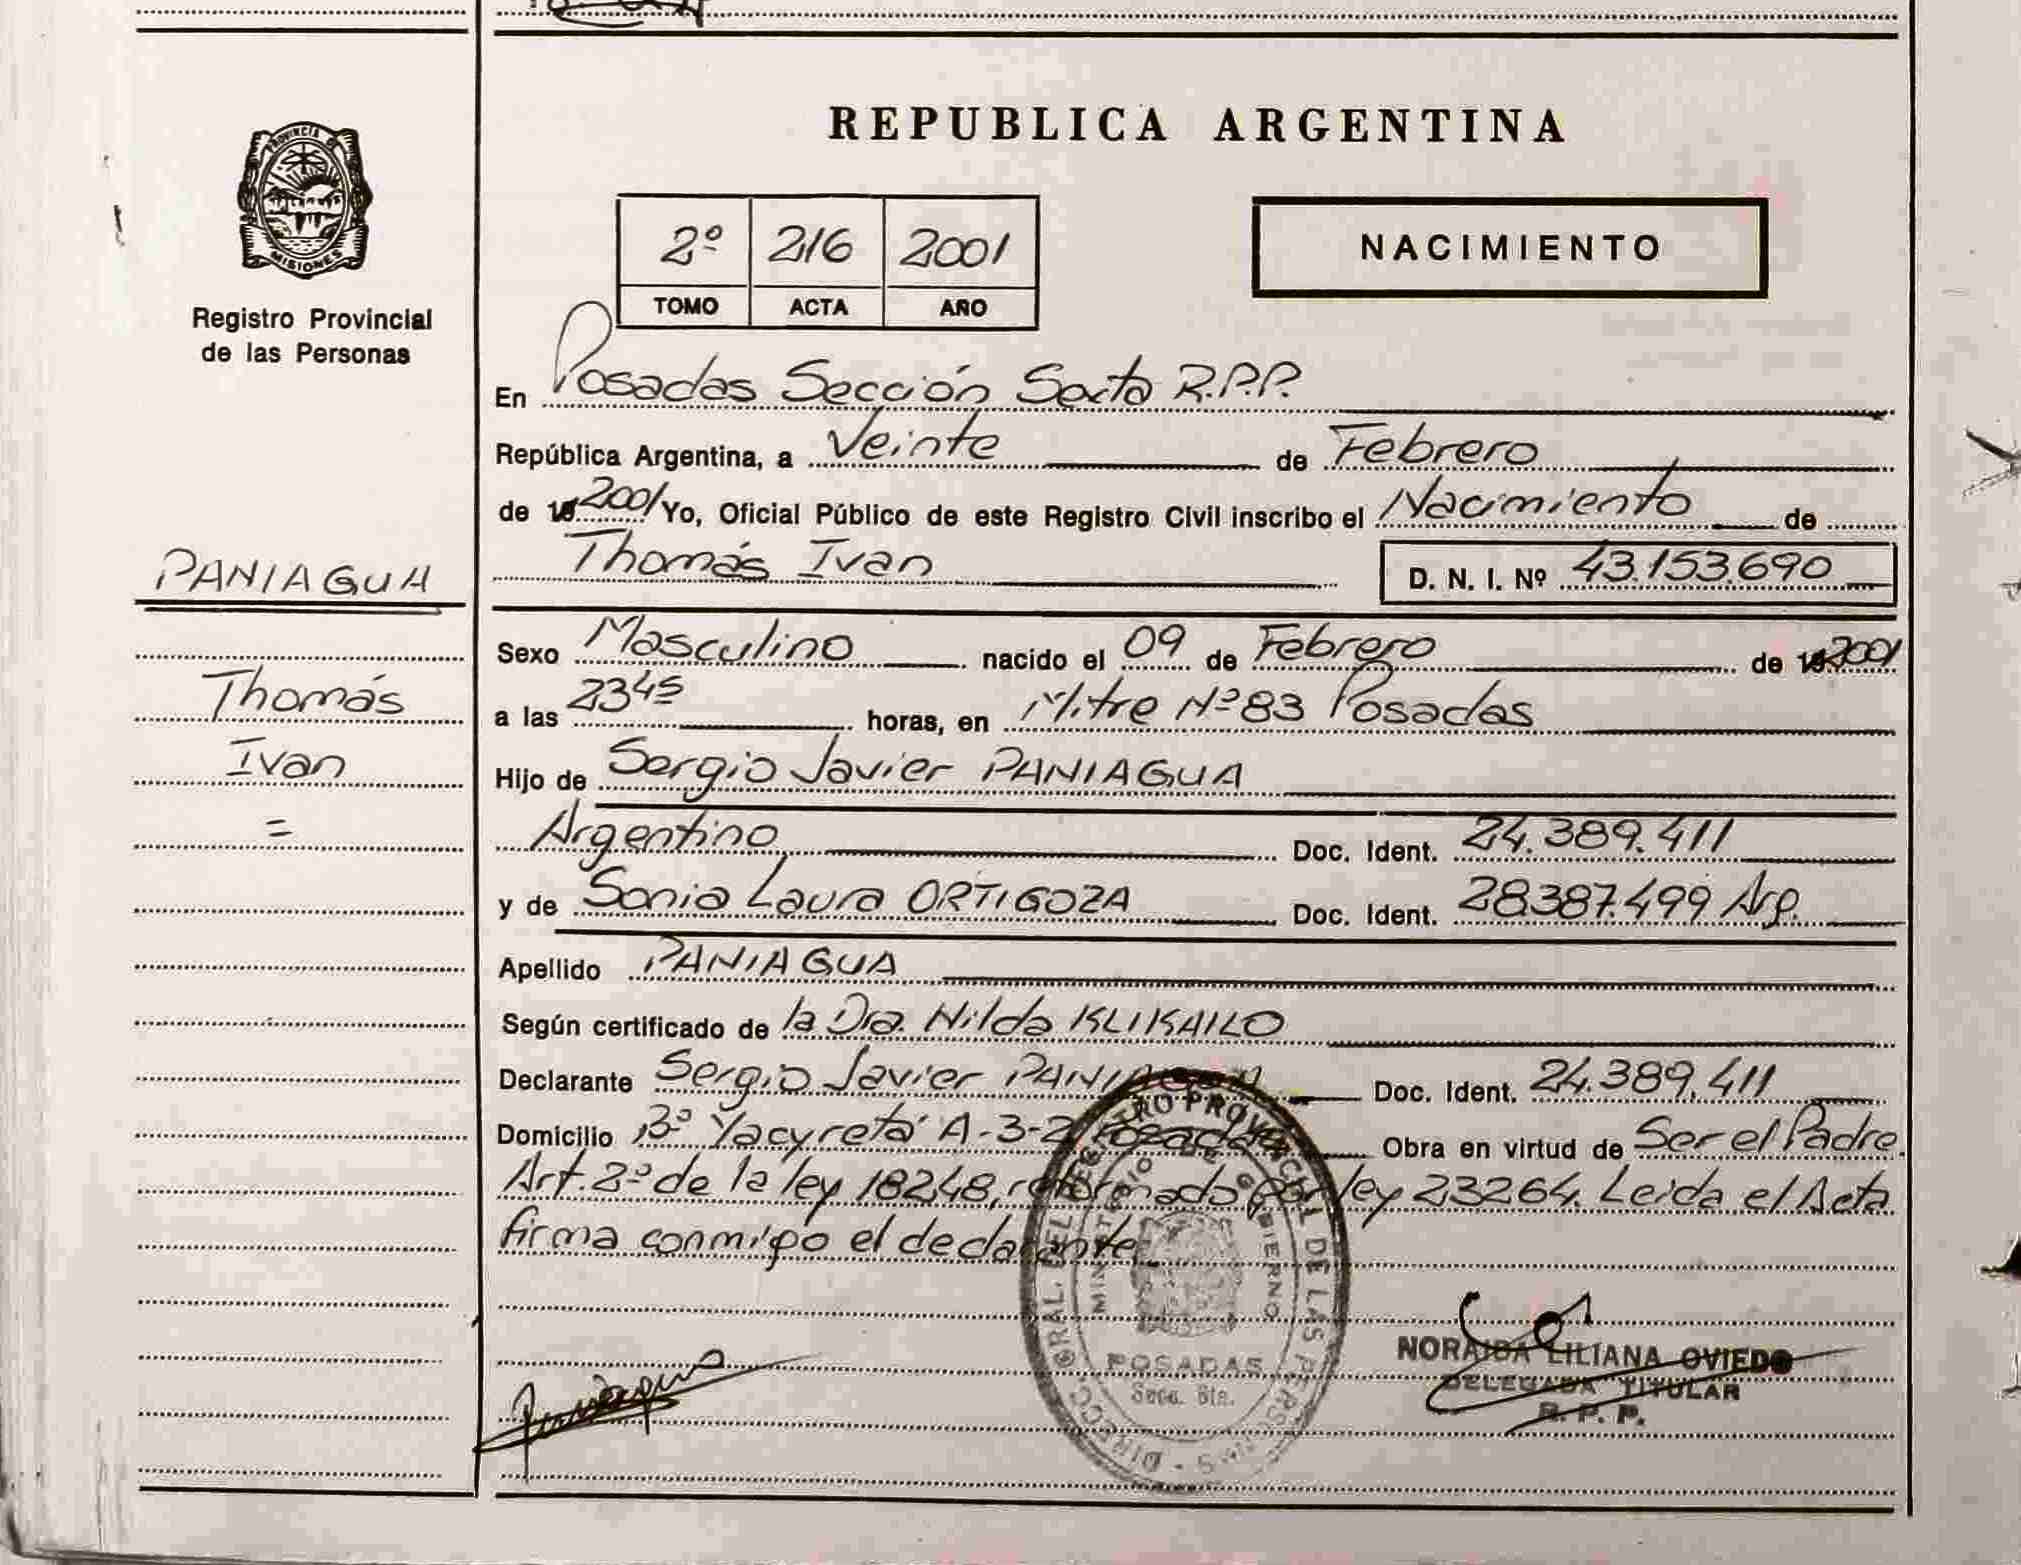 REPUBLICA ARGENTINA
PROVINCIA DE
MISIONES
Registro Provincial
de las Personas
2º 216 2001
TOMO ACTA AÑO
NACIMIENTO
En Posadas Sección Sexta R.P.P.
República Argentina, a Veinte de Febrero
de 2001 Yo, Oficial Público de este Registro Civil inscribo el Nacimiento de
Thomás Ivan D. N. I. Nº 43.153.690
PANIAGUA
Thomás
Ivan
=
Sexo Masculino nacido el 09 de Febrero de 2001
a las 23⁴⁵ horas, en Mitre Nº 83 Posadas
Hijo de Sergio Javier PANIAGUA
Argentino Doc. Ident. 24.389.411
y de Sonia Laura ORTIGOZA Doc. Ident. 28.387.499 Arg.
Apellido PANIAGUA
Según certificado de la Dra. Nilda KLIKAILO
Declarante Sergio Javier PANIAGUA Doc. Ident. 24.389.411
Domicilio Bº Yacyretá A-3-2 Posadas Obra en virtud de Ser el Padre
Art. 2º de la ley 18248, reformado por ley 23264. Leida el Acta
firma conmigo el declarante
DIRECC. GRAL. DEL REGISTRO PROVINCIAL DE LAS PERSONAS
MINISTERIO DE GOBIERNO
POSADAS
Secc. 6ta.
NORAIDA LILIANA OVIEDO
DELEGADA TITULAR
R. P. P.